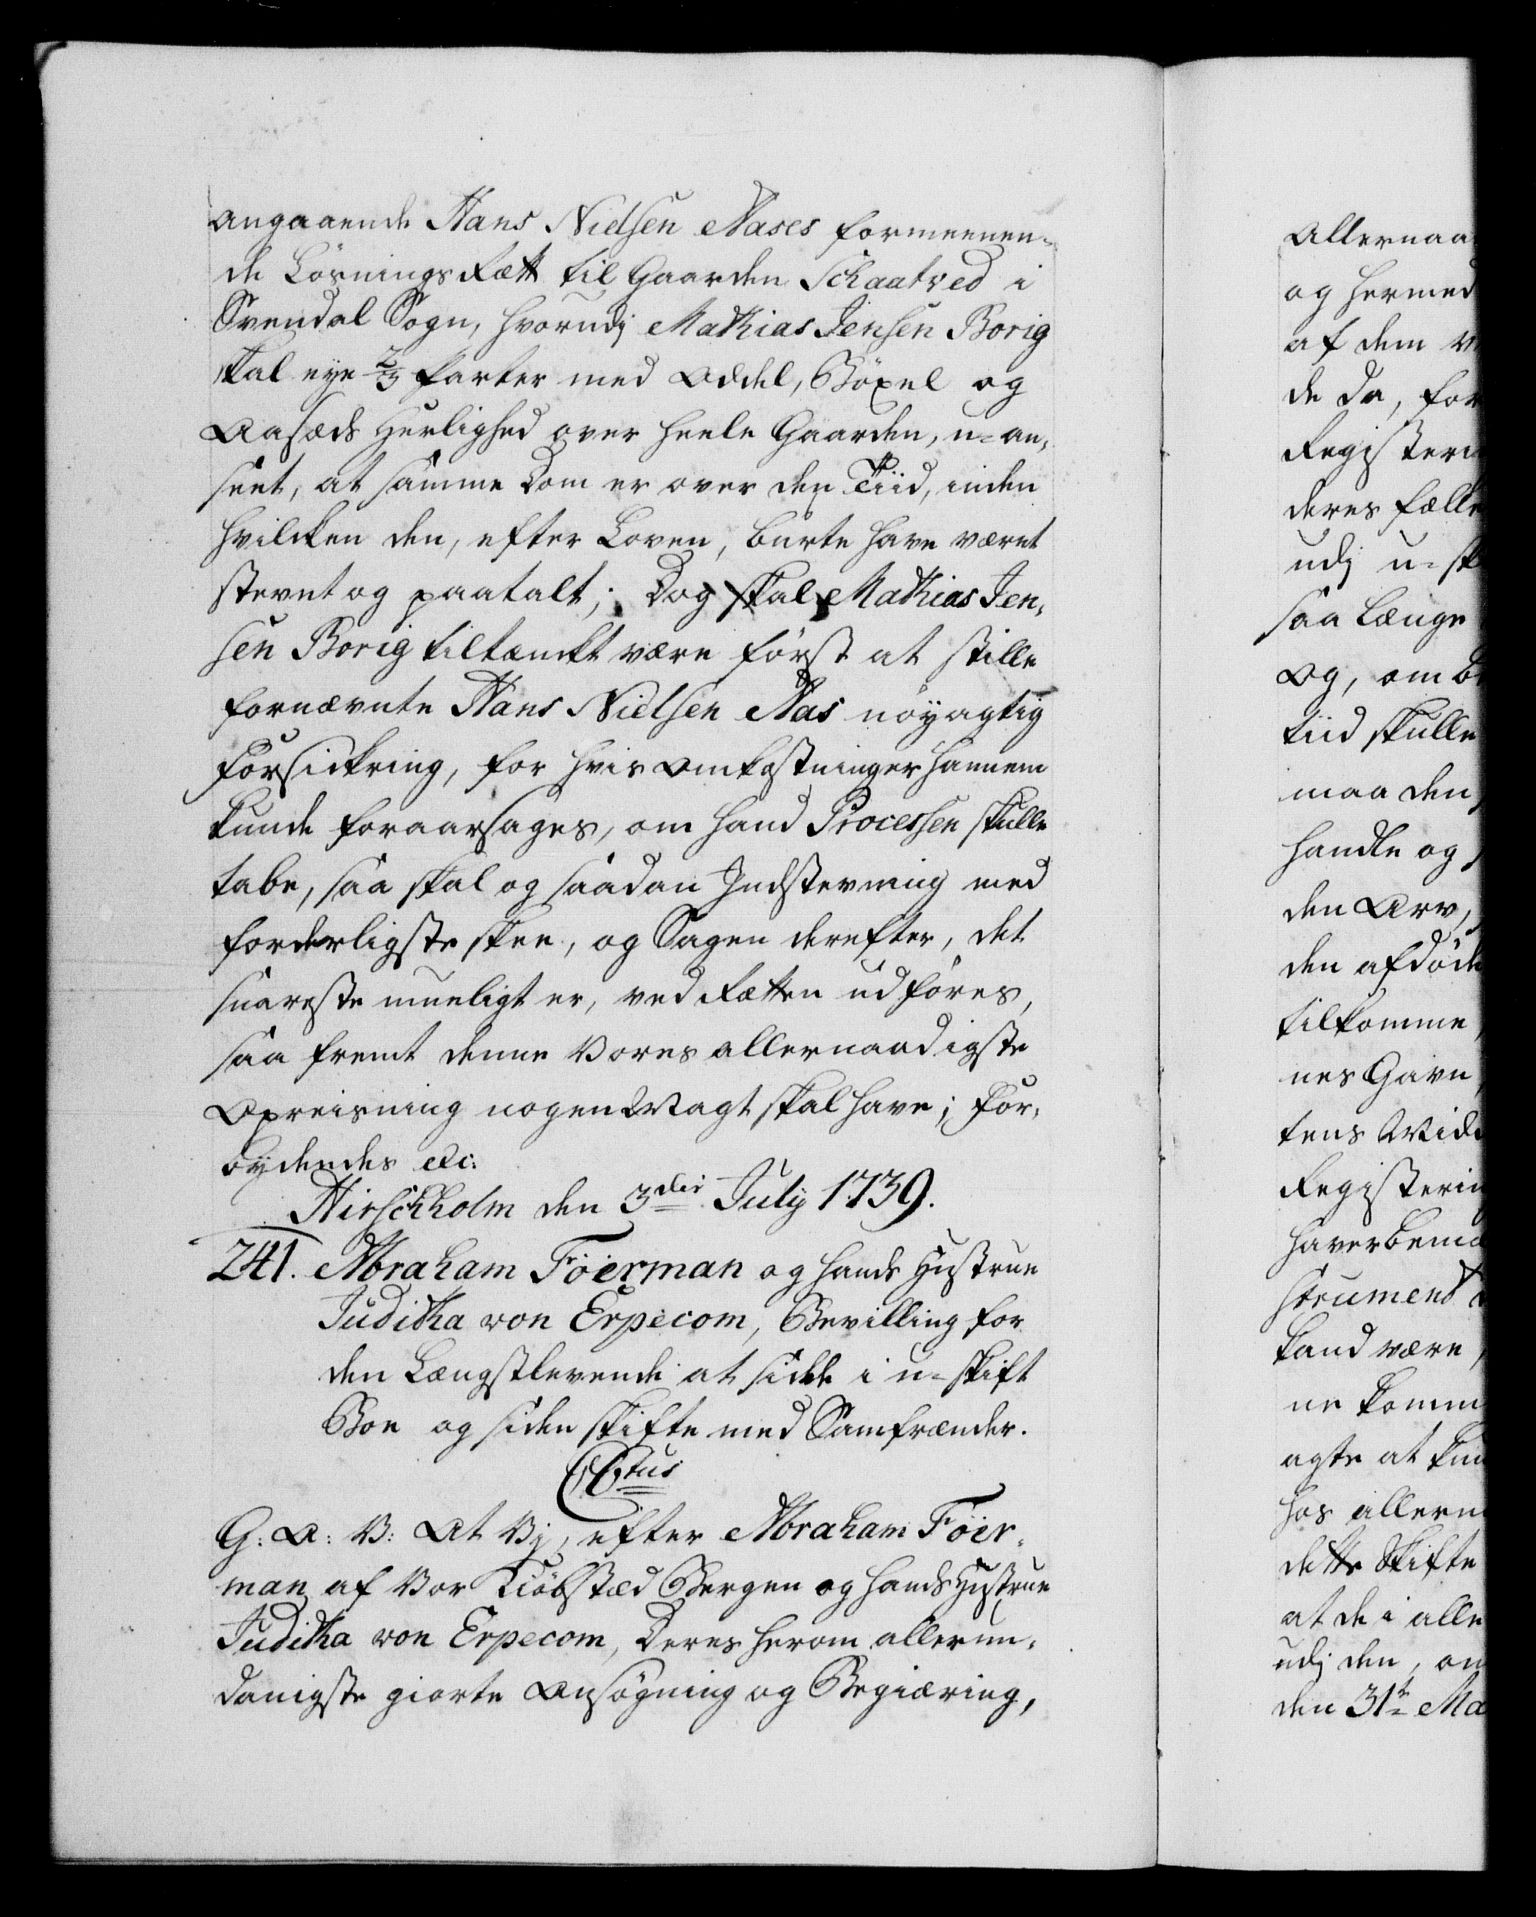 angaaende Hans Nielsen Aases formeenen-
de Løsnings Rætt til Gaarden Schaatved i
Svendal Sogn, hvorudj Mathias Jensen Borig
skal eye 2/3 parter med Oddel, Böxel og
Aasæds Herlighed over heele Gaarden, u-an,
seet, at samme Dom er over den Tiid, inden
hvilcken den, efter Loven, burte have været
stevnt og paatalt; Dog skal Mathias Jen,
sen Borig tiltænckt være först at stille
fornævnte Hans Nielsen Aas nöyagtig
Forsickring, for hvis Omkostninger hannem
kunde foraarsages, om hand Processen skulle
tabe, saa skal og saadan Indstevning med
forderligste skee, og Sagen derefter, det
snareste mueligt er, ved Rætten udföres,
saa fremt denne Vores allernaadigste
Opreisning nogen Magt skal have; For,
bydendes etc:
Hirschholm den 3die July 1739.
241. Abraham Föerman og hands Hustrue
Juditha von Erpecom, Bevilling for
den Længstlevende at sidde i u-skift
Boe og siden skifte med Samfrænder.
C6tus
G: A: V: At Vj, efter Abraham Föer,
man af Vor Kiöbstæd Bergen og hands Hustrue
Juditha von Erpecom, Deres herom allerun,
danigste giorte Ansögning og Begiæring,
Allernaa
og hermed
af dem
de da, for
Registeri
deres fælle
udj u-sk
saa længe
Og, om
tiid skulle
maa den
handle og
den Arv,
den afdöde
tilkomme
nes Gavn
tens Vide
Registerin
haver
strument
kand være
ne komm
agte at kun
hos allern
dette Skifte
at de i alle
udj den, om
den 31te Ma